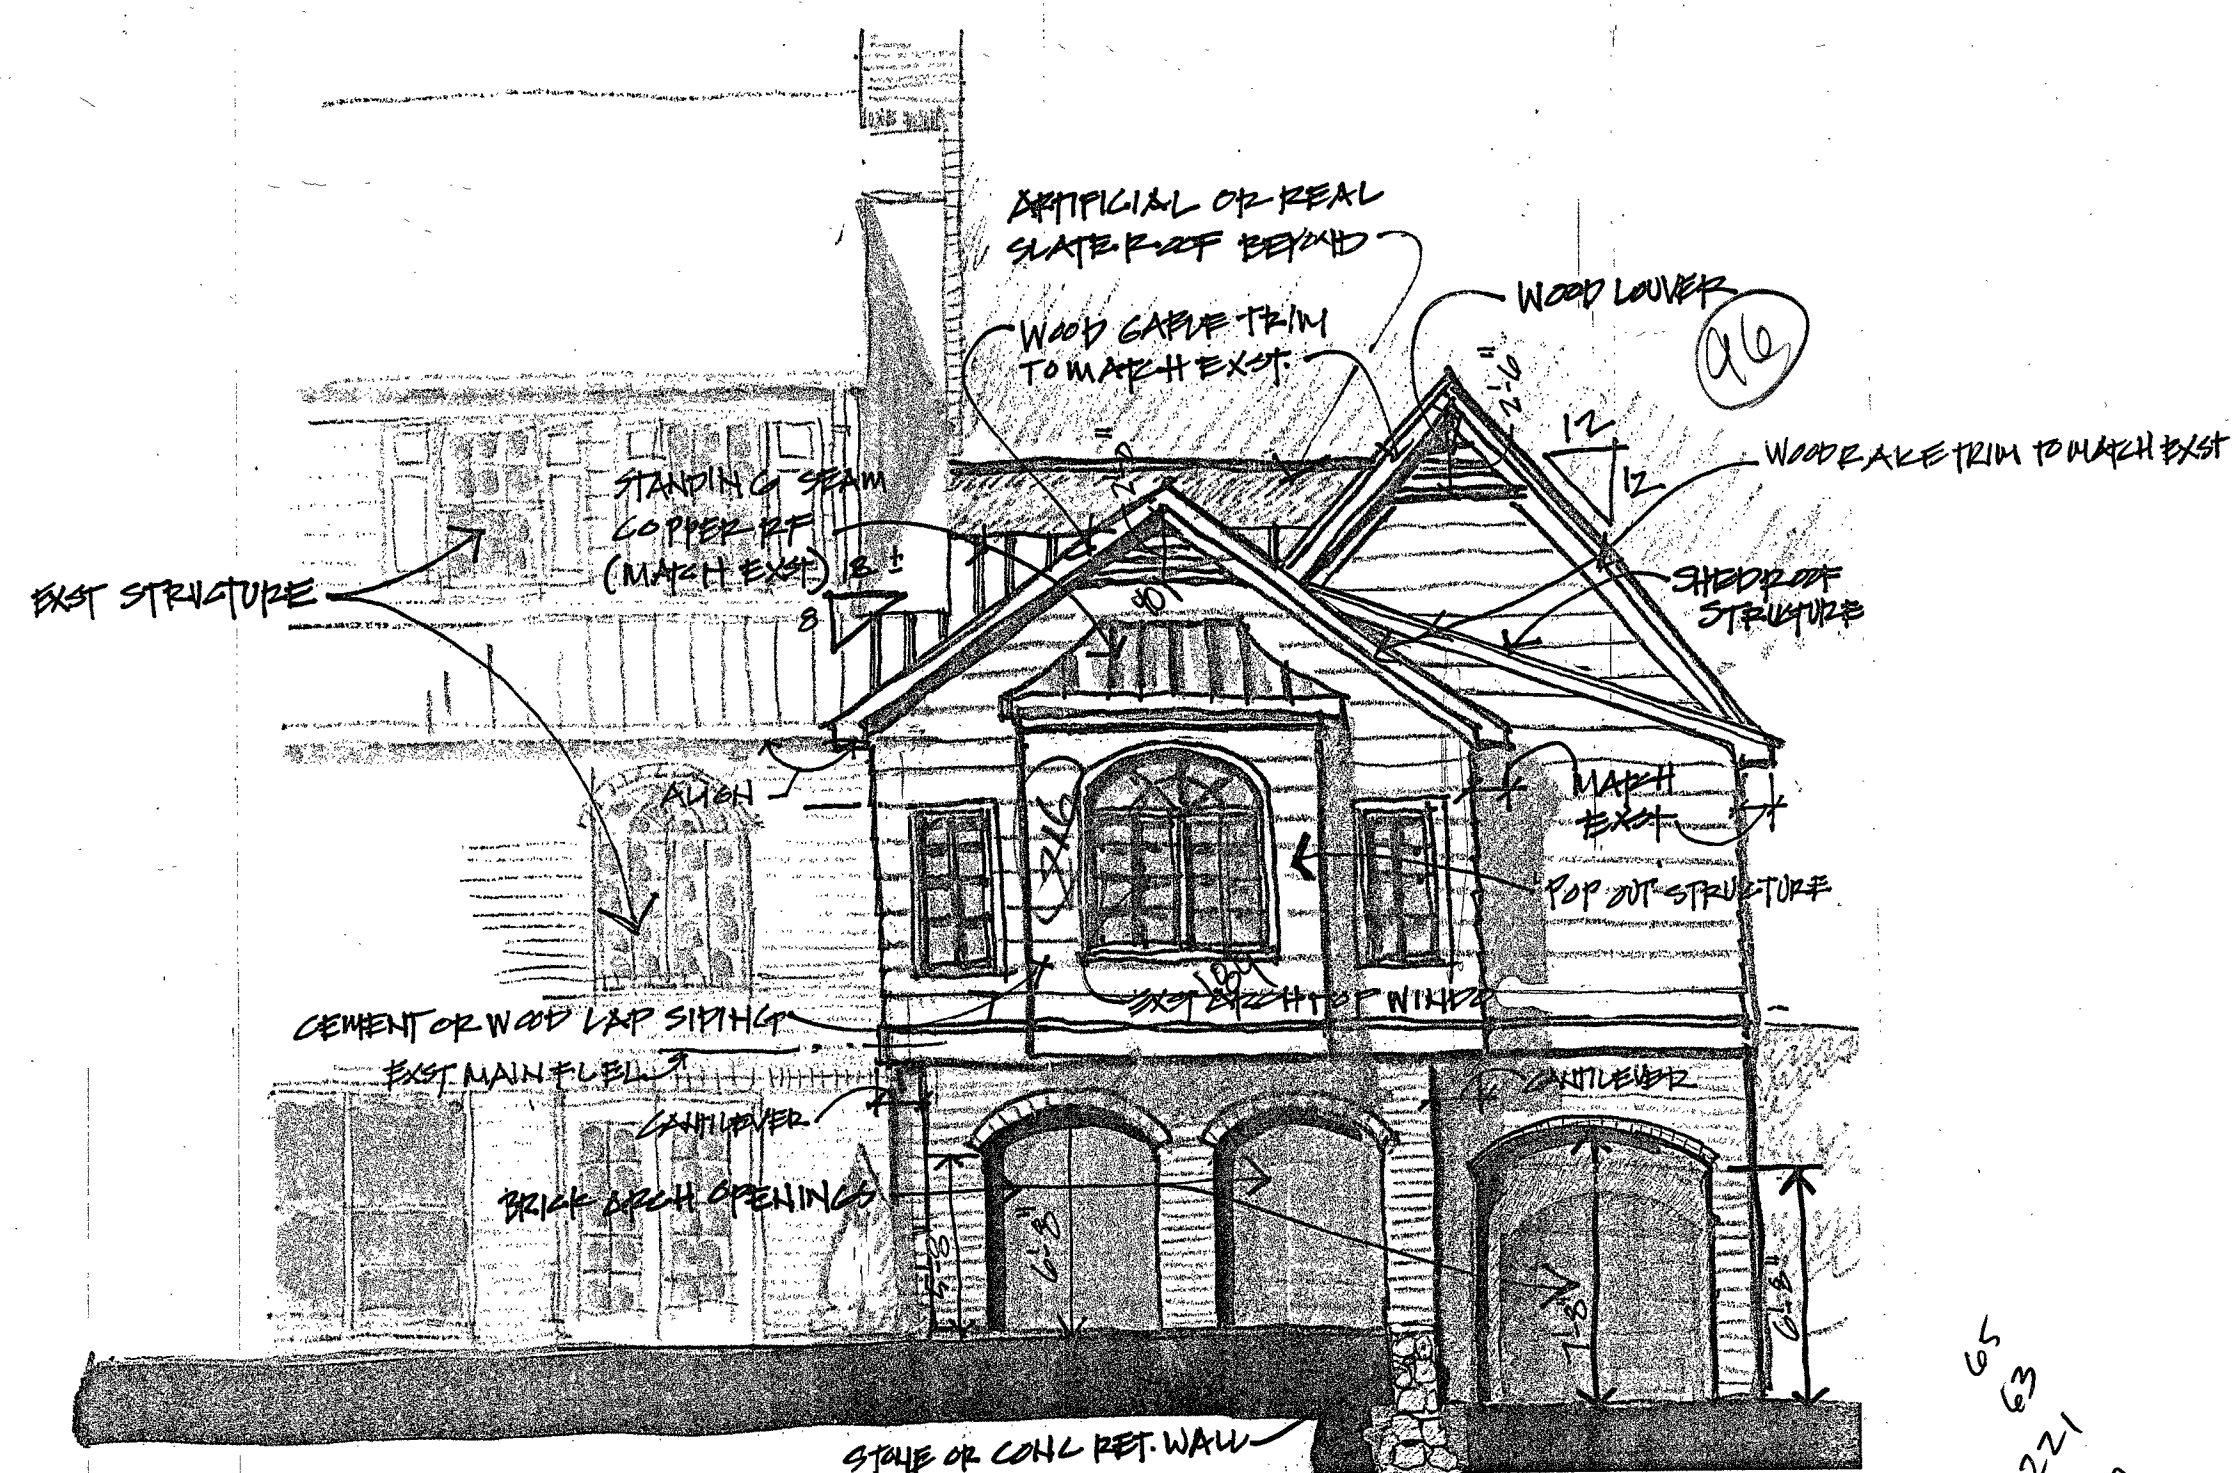 ARTIFICIAL OR REAL
SLATE ROOF BEYOND
WOOD LOUVER
96
WOOD GABLE TRIM
TO MATCH EXST.
2'-6"
12
12
WOOD RAKE TRIM TO MATCH EXST
2'-0"
STANDING SEAM
COPPER RF
(MATCH EXST)
12 ±
8
EXST STRUCTURE
SHED ROOF
STRUCTURE
ALIGN
MATCH
EXST
POP OUT STRUCTURE
184
EXST ARCH TOP WINDO
CEMENT OR WOOD LAP SIDING
EXST. MAIN FL EL.
CANTILEVER
CANTILEVER
BRICK ARCH OPENINGS
5'-8"
6'-8"
7'-8"
6'-8"
STONE OR CONC RET. WALL
65
63
221